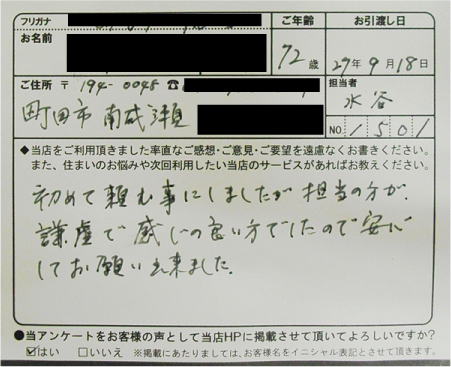 フリガナ
お名前
ご年齢
お引渡し日
72歳
29年9月18日
ご住所 〒 194-0048 ☎
町田市 南成瀬
担当者
水谷
NO. 1501
◆当店をご利用頂きました率直なご感想・ご意見・ご要望を遠慮なくお書きください。
また、住まいのお悩みや次回利用したい当店のサービスがあればお教えください。
初めて頼む事にしましたが担当の方が、
謙虚で感じの良い方でしたので安心
してお願い出来ました。
●当アンケートをお客様の声として当店HPに掲載させて頂いてよろしいですか?
☑はい □いいえ ※掲載にあたりましては、お客様名をイニシャル表記とさせて頂きます。